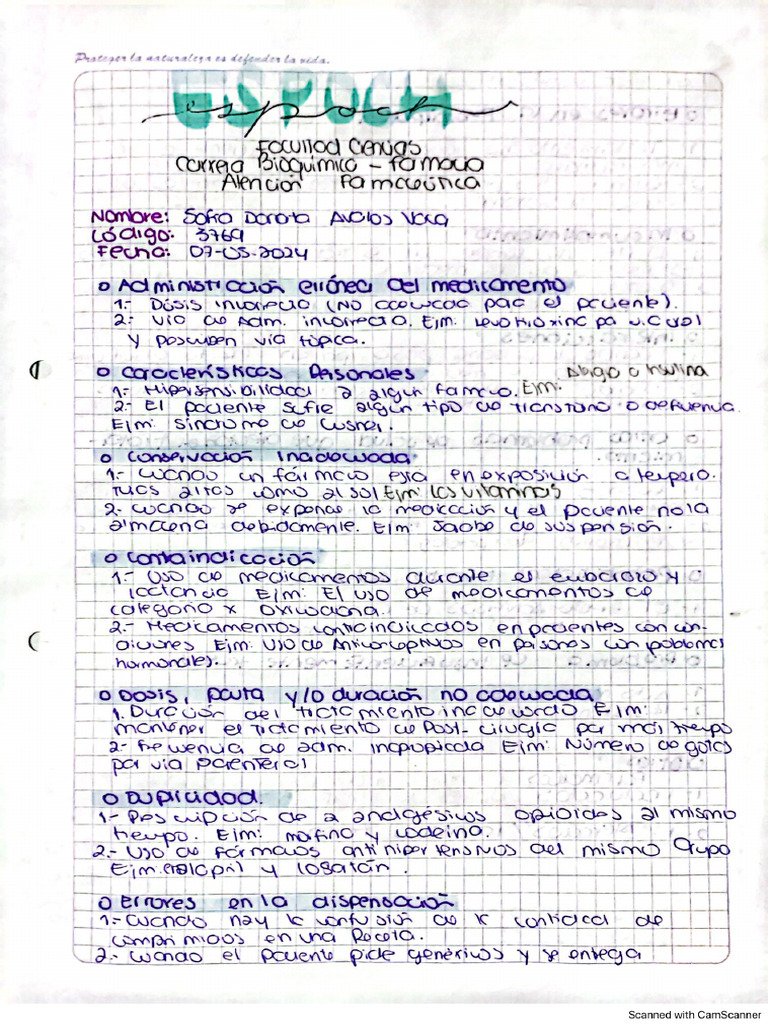 Proteger la naturaleza es defender la vida.
ESPOCH
espoch
Facultad Ciencias
Carrera Bioquímica - Farmacia
Atención Farmacéutica
Nombre: Sofia Dorota Avalos Vaca
Código: 3769
Fecha: 07-05-2024
o Administración errónea del medicamento
1.- Dosis incorrecta (No adecuada para el paciente).
2.- Vía de Adm. incorrecta. Ejm: Levotiroxina por vía oral
y prescriben vía tópica.
o Características Personales
1.- Hipersensibilidad a algún fármaco. Ejm: Alergia a insulina
2.- El paciente sufre algún tipo de transtorno o deficiencia.
Ejm: Síndrome de Cusher.
o Conservación Inadecuada
1.- Cuando un fármaco está en exposición a tempera-
turas altas como al sol Ejm: Las vitaminas
2.- Cuando se expende la medicación y el paciente no la
almacena debidamente. Ejm: Jarabe de suspensión.
o Contraindicación
1.- Uso de medicamentos durante el embarazo y
lactancia Ejm: El uso de medicamentos de
categoría x
2.- Medicamentos contraindicados en pacientes con con-
diciones Ejm: Uso de Anticonceptivos en personas con problemas
hormonales).
o Dosis, pauta y/o duración no adecuada
1. Duración del tratamiento inadecuado Ejm:
mantener el tratamiento de Post- cirugía por más tiempo
2.- Frecuencia de adm. inapropiada Ejm: Número de gotas
por vía parenteral
o Duplicidad.
1.- Prescripción de 2 analgésicos opioides al mismo
tiempo. Ejm: morfina y codeína.
2.- Uso de fármacos antihipertensivos del mismo Grupo
Ejm: enalapril y losartán.
o Errores en la dispensación
1.- Cuando hay la confusión de la cantidad de
comprimidos en una Receta.
2.- Cuando el paciente pide genéricos y se entrega
Scanned with CamScanner